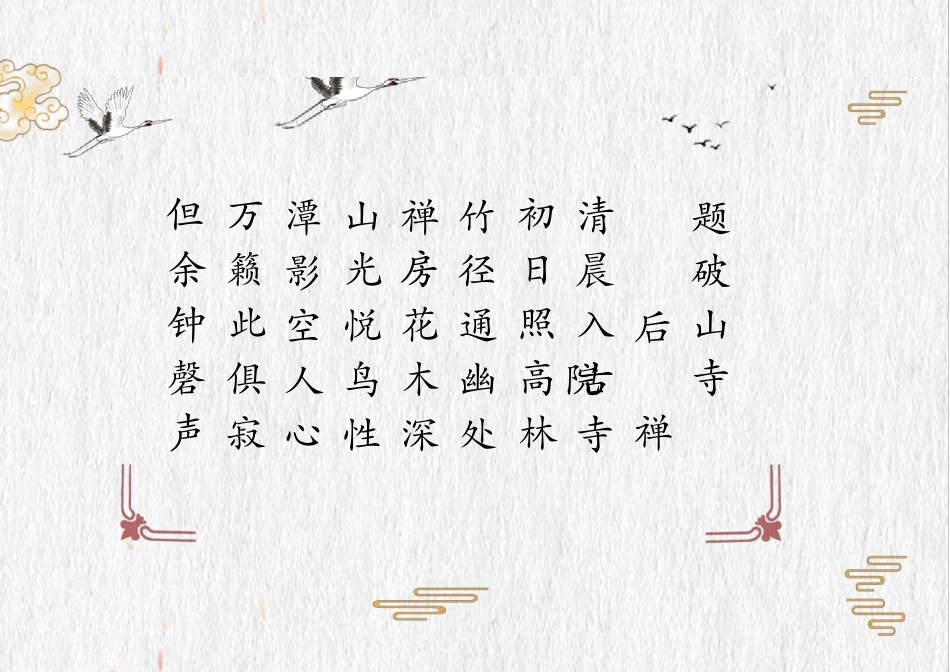 题破山寺
后禅院
清晨入古寺
初日照高林
竹径通幽处
禅房花木深
山光悦鸟性
潭影空人心
万籁此俱寂
但余钟磬声